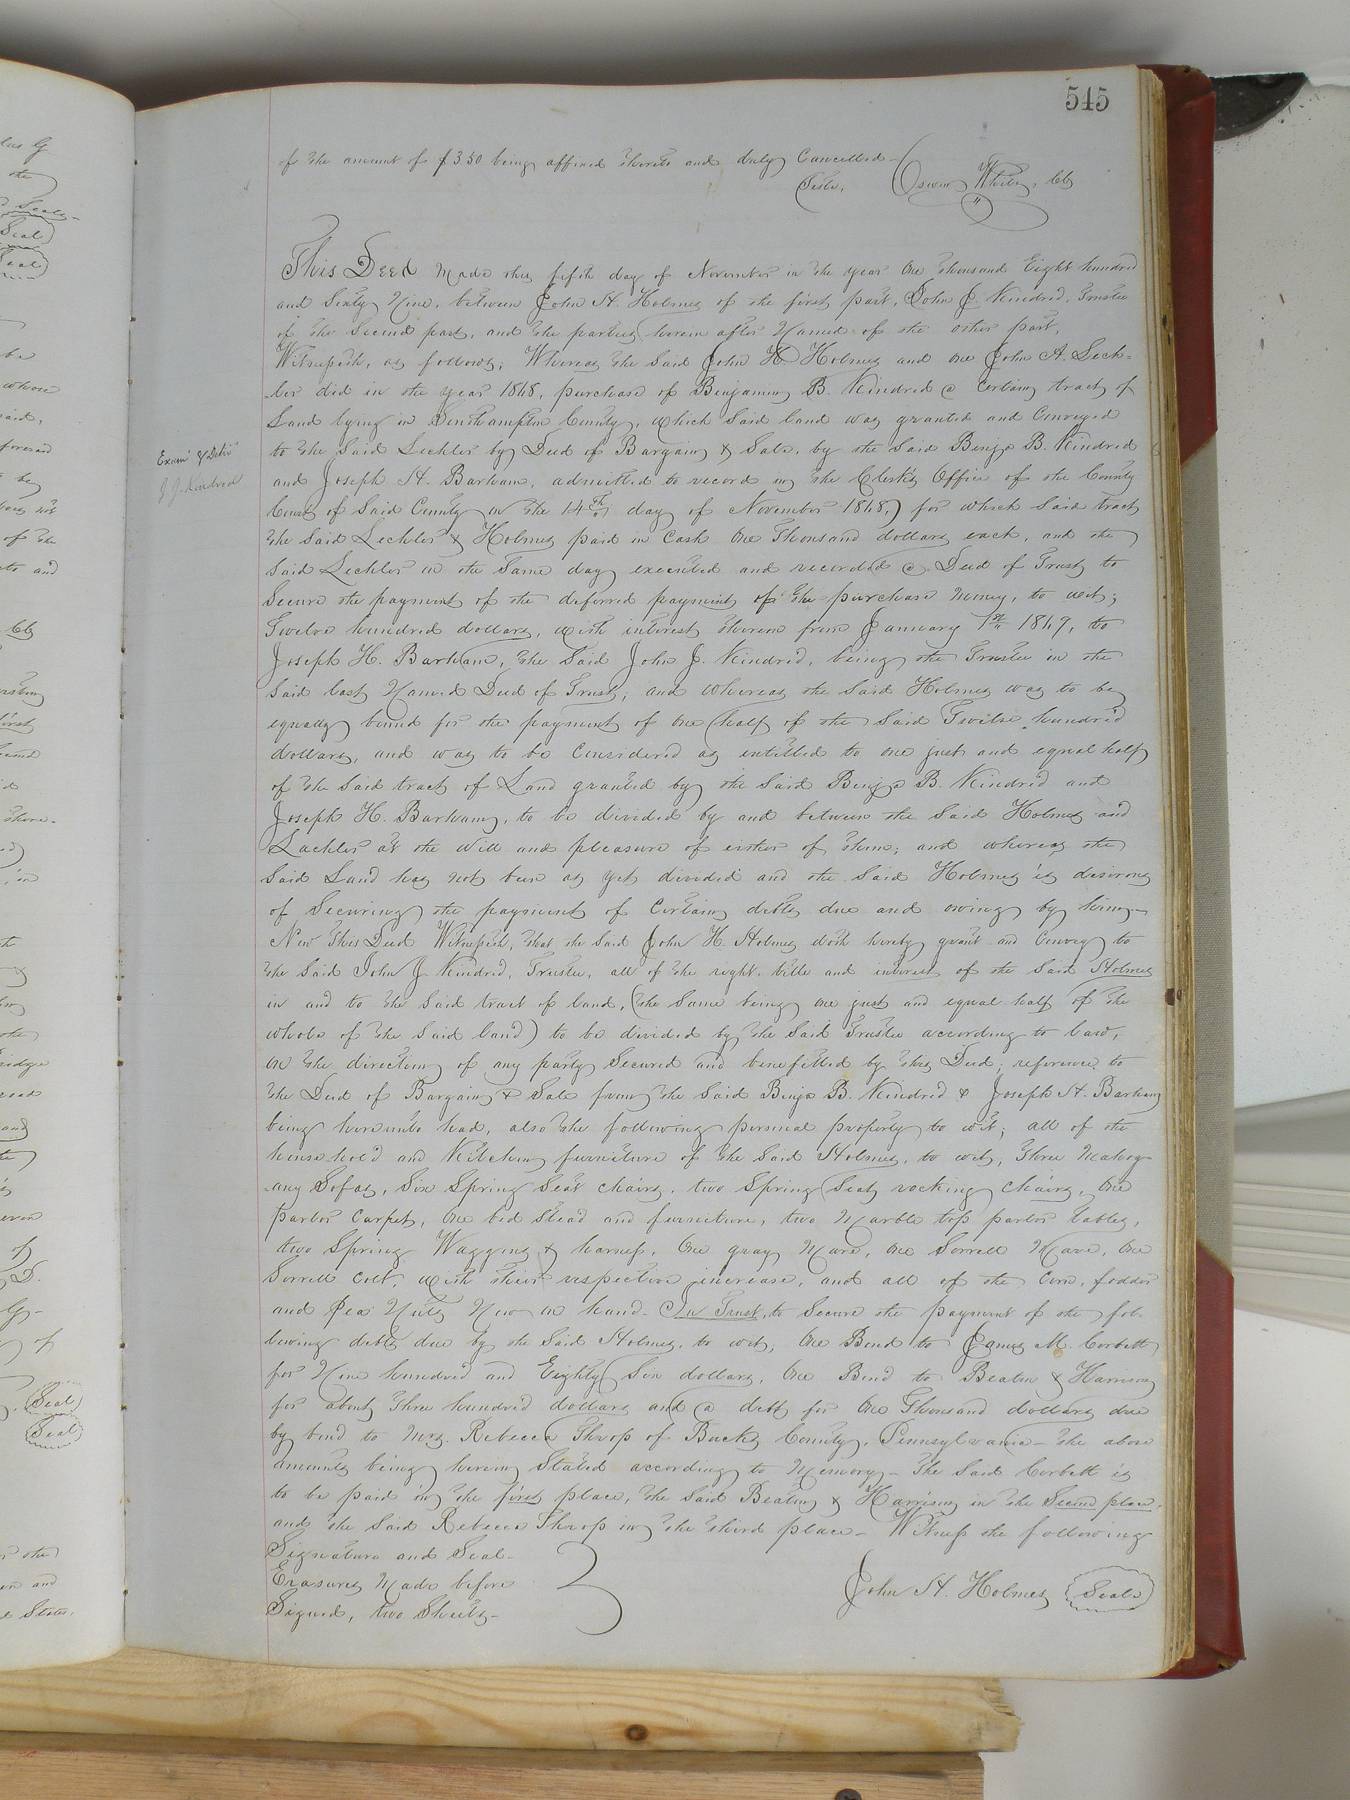 545
of the amount of $3 50 being affixed thereto and duly Cancelled –
Teste, Oswin White, Clk
This Deed Made this fifth day of November in the year One thousand Eight hundred
and Sixty Nine, between John H. Holmes of the first part, John J. Kindred, Trustee
of the Second part, and the parties herein after Named of the other part,
Witnesseth, as follows; Whereas the Said John H. Holmes and one John A. Lech-
ler did in the year 1868, purchase of Benjamin B. Kindred a Certain tract of
Land lying in Southampton County, which Said land was granted and Conveyed
to the Said Lechler by Deed of Bargain & Sale, by the Said Benja B. Kindred
and Joseph H. Barham, admitted to record in the Clerk's Office of the County
Court of Said County on the 14th day of November 1868,) for which Said tract
the Said Lechler & Holmes paid in Cash One Thousand dollars each, and the
Said Lechler on the Same day executed and recorded a Deed of Trust to
Secure the payment of the deferred payment of the purchase money, to wit;
Twelve hundred dollars, with interest thereon from January 1st 1869, to
Joseph H. Barham, the Said John J. Kindred, being the Trustee in the
Said last Named Deed of Trust, and whereas the Said Holmes was to be
equally bound for the payment of one half of the Said Twelve hundred
dollars, and was to be Considered as entitled to one just and equal half
of the Said tract of Land granted by the Said Benja B. Kindred and
Joseph H. Barham, to be divided by and between the Said Holmes and
Lechler at the Will and pleasure of either of them; and whereas the
Said Land has not been as yet divided and the Said Holmes is desirous
of Securing the payment of Certain debts due and owing by him –
Now This Deed Witnesseth, that the Said John H. Holmes doth hereby grant and Convey to
the Said John J. Kindred, Trustee, all of the right, title and interest of the Said Holmes
in and to the Said tract of land, (the Same being one just and equal half of the
whole of the Said land) to be divided by the Said Trustee according to law,
on the direction of any party Secured and benefitted by this Deed; reference to
the Deed of Bargain & Sale from the Said Benja B. Kindred & Joseph H. Barham
being hereunto had, also the following personal property to wit; all of the
household and Kitchen furniture of the Said Holmes, to wit, Three Mahog-
any Sofas, Six Spring Seat chairs, two Spring Seat rocking chairs, One
parlor carpet, One bed Stead and furniture, two Marble top parlor tables,
two Spring Waggons & harness, One gray Mare, One Sorrell Mare, One
Sorrell Colt, with their respective increase, and all of the Corn, fodder
and Pea Nuts Now on hand – In Trust, to Secure the payment of the fol-
lowing debts due by the Said Holmes, to wit, One Bond to James M. Corbett
for Nine hundred and Eighty Six dollars, One Bond to Beaton & Harrison
for about Three hundred dollars and a debt for One Thousand dollars due
by bond to Mrs. Rebecca Throp of Bucks County, Pennsylvania – the above
amounts being herein Stated according to Memory – The Said Corbett is
to be paid in the first place, the Said Beaton & Harrison in the Second place,
and the Said Rebecca Throp in the third place – Witness the following
Signature and Seal –
Erasures Made before
Signed, two Sheets –
John H. Holmes (Seal)
Exam' & Deliv'
J J. Kindred